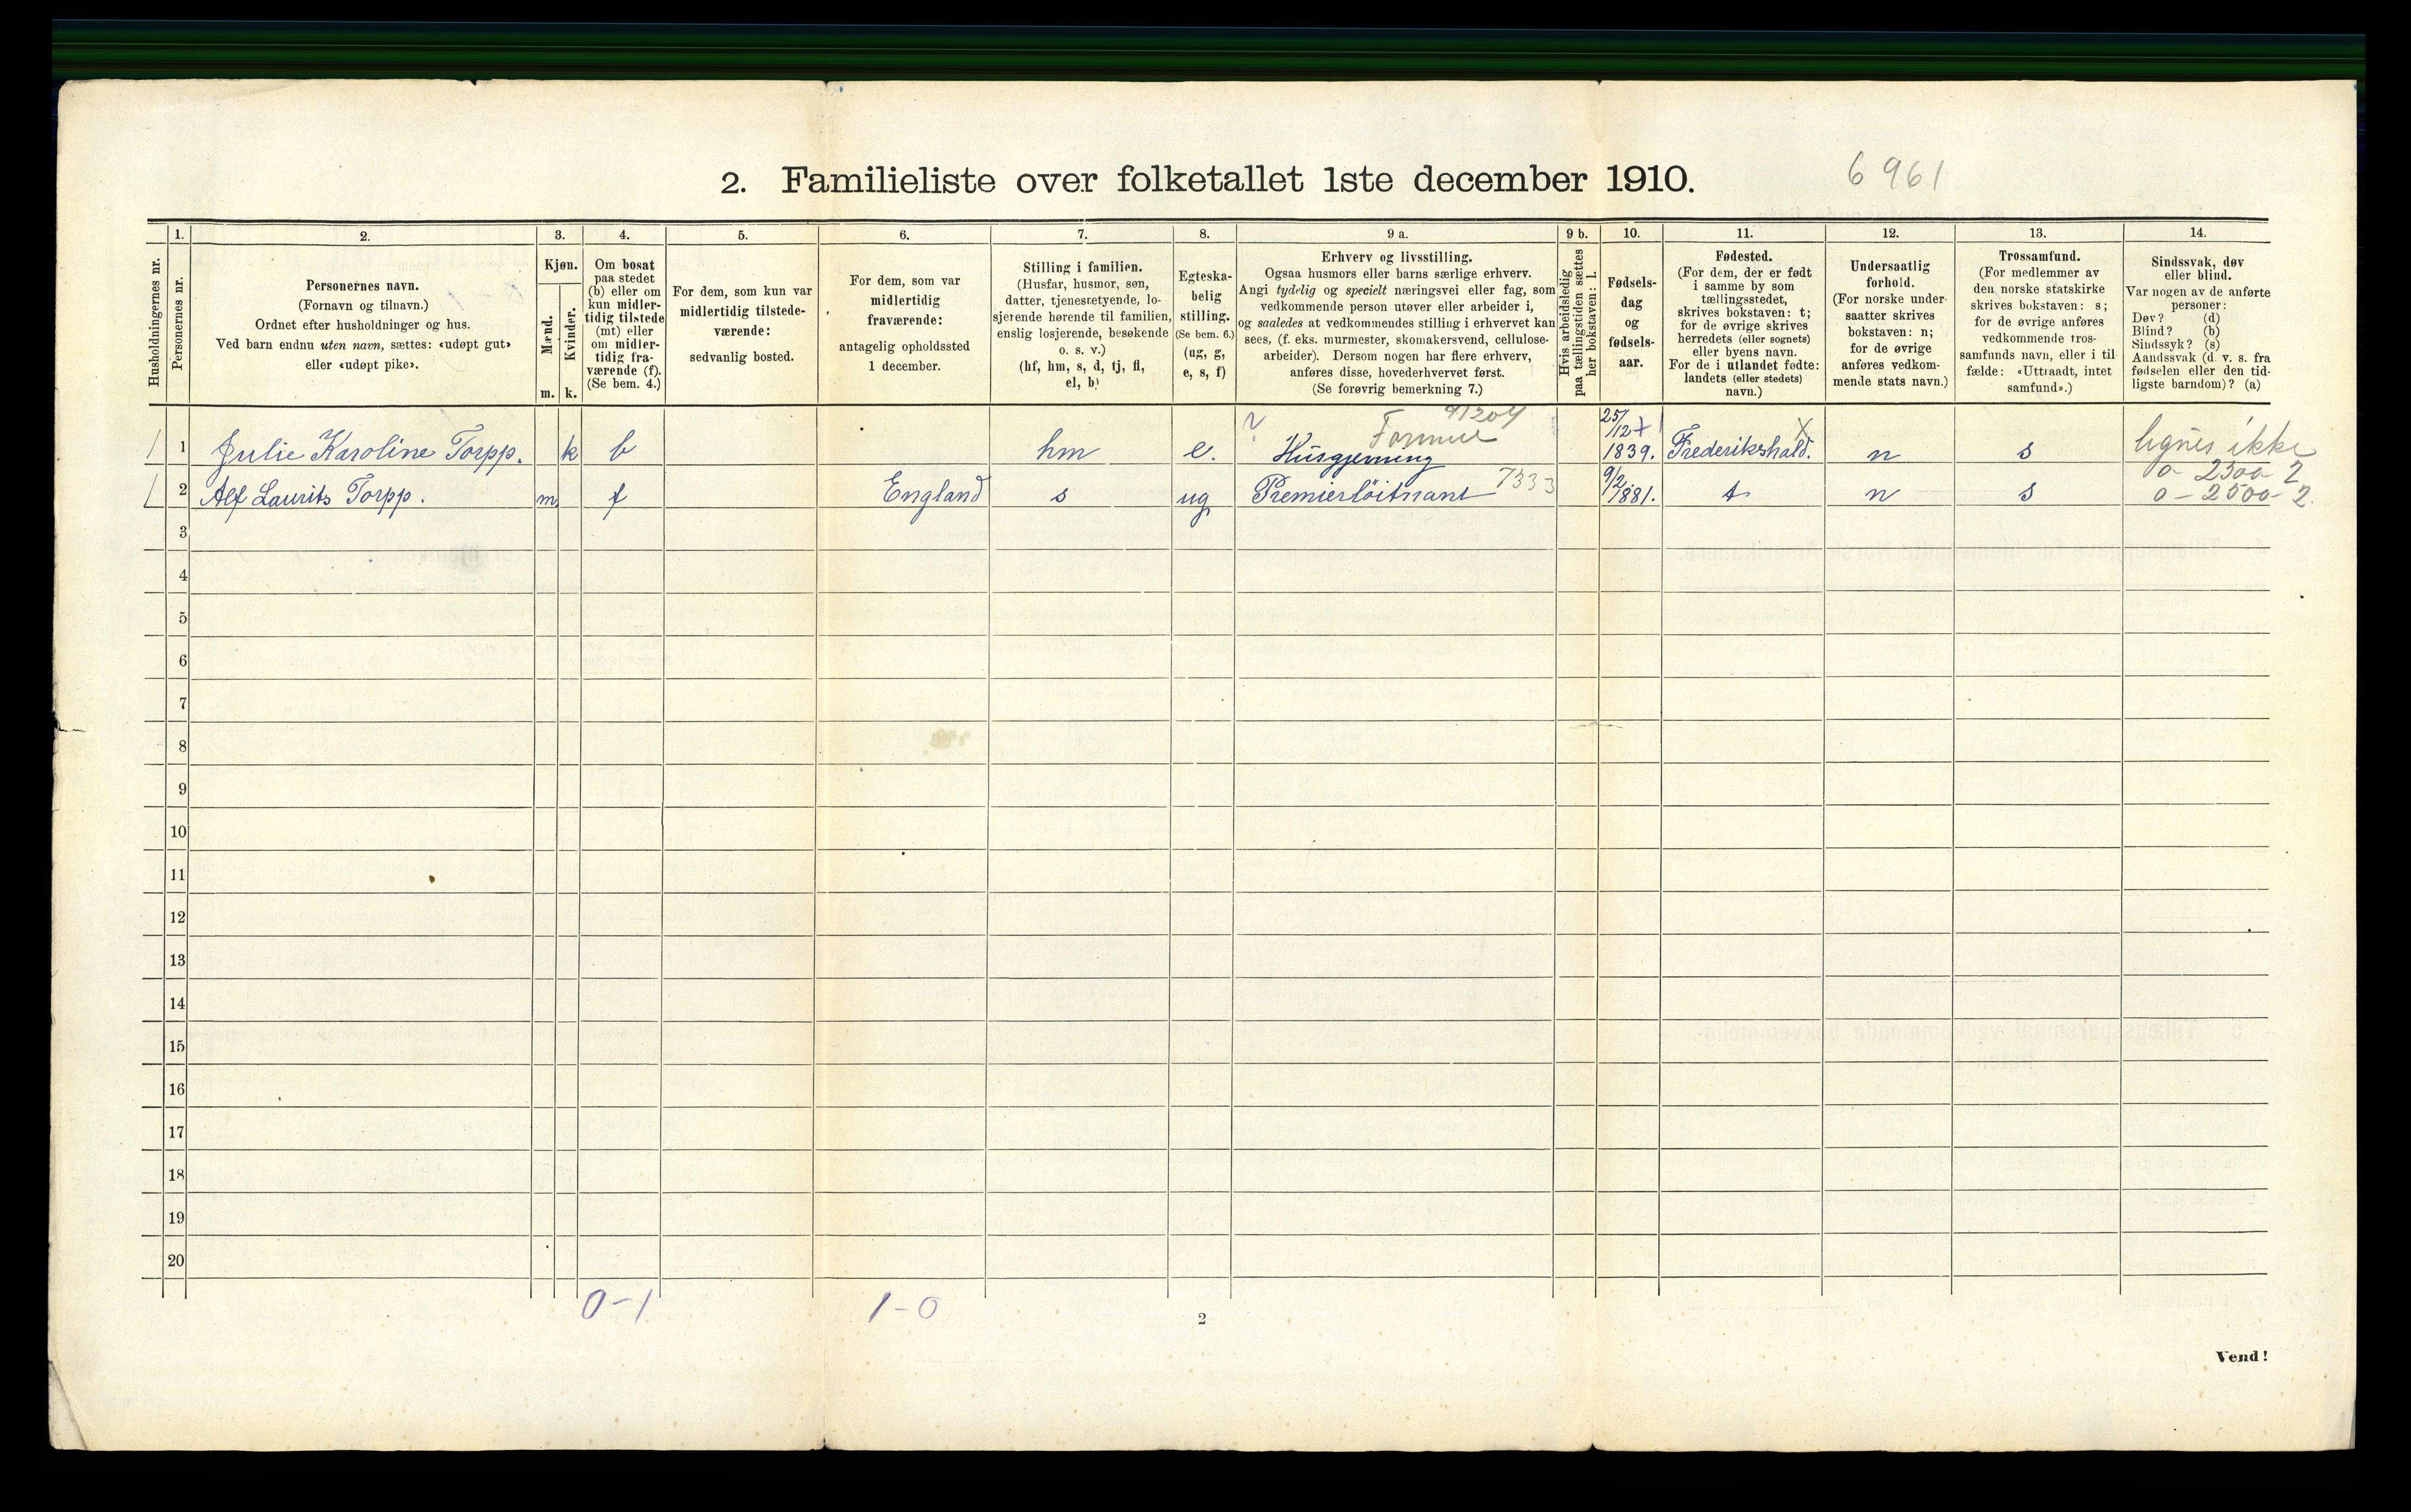 2. Familieliste over folketallet 1ste december 1910.
6961
Husholdningernes nr.
1.
Personernes nr.
2.
Personernes navn.
(Fornavn og tilnavn.)
Ordnet efter husholdninger og hus.
Ved barn endnu uten navn, sættes: «udøpt gut»
eller «udøpt pike».
3.
Kjøn.
Mænd.
Kvinder.
m. k.
4.
Om bosat
paa stedet
(b) eller om
kun midler-
tidig tilstede
(mt) eller
om midler-
tidig fra-
værende (f).
(Se bem. 4.)
5.
For dem, som kun var
midlertidig tilstede-
værende:
sedvanlig bosted.
6.
For dem, som var
midlertidig
fraværende:
antagelig opholdssted
1 december.
7.
Stilling i familien.
(Husfar, husmor, søn,
datter, tjenestetyende, lo-
sjerende hørende til familien,
enslig losjerende, besøkende
o. s. v.)
(hf, hm, s, d, tj, fl,
el, b)
8.
Egteska-
belig
stilling.
(Se bem. 6.)
(ug, g,
e, s, f)
9 a.
Erhverv og livsstilling.
Ogsaa husmors eller barns særlige erhverv.
Angi tydelig og specielt næringsvei eller fag, som
vedkommende person utøver eller arbeider i,
og saaledes at vedkommendes stilling i erhvervet kan
sees, (f. eks. murmester, skomakersvend, cellulose-
arbeider). Dersom nogen har flere erhverv,
anføres disse, hovederhvervet først.
(Se forøvrig bemerkning 7.)
9 b.
Hvis arbeidsledig
paa tællingstiden sættes
her bokstaven: l.
10.
Fødsels-
dag
og
fødsels-
aar.
11.
Fødested.
(For dem, der er født
i samme by som
tællingsstedet,
skrives bokstaven: t;
for de øvrige skrives
herredets (eller sognets)
eller byens navn.
For de i utlandet fødte:
landets (eller stedets)
navn.)
12.
Undersaatlig
forhold.
(For norske under-
saatter skrives
bokstaven: n;
for de øvrige
anføres vedkom-
mende stats navn.)
13.
Trossamfund.
(For medlemmer av
den norske statskirke
skrives bokstaven: s;
for de øvrige anføres
vedkommende tros-
samfunds navn, eller i til-
fælde: «Uttraadt, intet
samfund».)
14.
Sindssvak, døv
eller blind.
Var nogen av de anførte
personer:
Døv? (d)
Blind? (b)
Sindssyk? (s)
Aandssvak (d. v. s. fra
fødselen eller den tid-
ligste barndom)? (a)
91204
Formue
1 1 Julie Karoline Torpp. k b hm e. Husgjerning 25/12 1839. Frederikshald. n s lignes ikke
0 - 2300 - 2
1 2 Alf Laurits Torpp. m f England s ug Premierlöitnant 7333 9/2 1881. t n s 0 - 2500 - 2.
3
4
5
6
7
8
9
10
11
12
13
14
15
16
17
18
19
20
0-1 1-0
2
Vend!